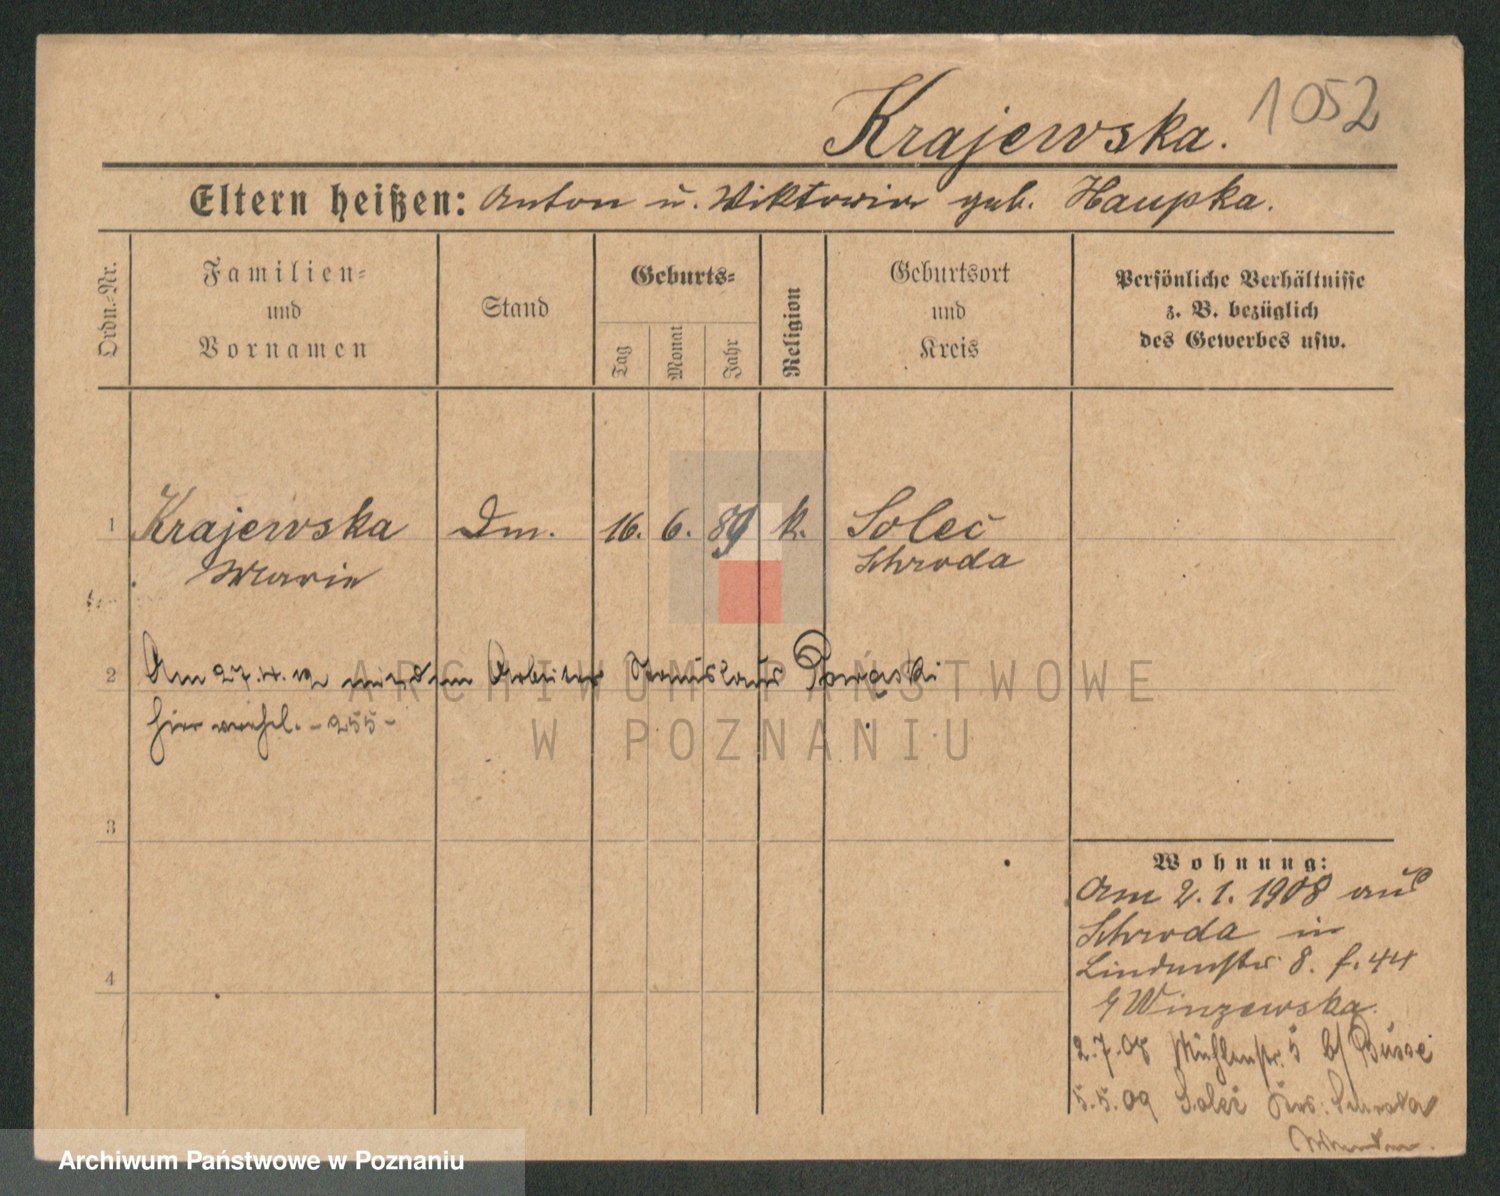 Krajewska. 1052
Eltern heißen: Anton u. Wiktoria geb. Haupka.
Ordn.=Nr.
Familien=
und
Vornamen
Stand
Geburts=
Tag
Monat
Jahr
Religion
Geburtsort
und
Kreis
Persönliche Verhältnisse
z. B. bezüglich
des Gewerbes usw.
1 Krajewska Dm. 16. 6. 89 k. Soleč
Marie Schroda
2 Am 27.4. mit dem Arbeiter Stanislaus
hier verehel. - 255 -
3
4
Wohnung:
Am 2.1. 1908 aus
Schroda in
Lindenstr. 8. f. 44
Winzewska.
2.7.08 Mühlenstr. 5 b/ Busse
5.5.09 Soleč Krs. Schroda
ARCHIWUM PAŃSTWOWE
W POZNANIU
Archiwum Państwowe w Poznaniu